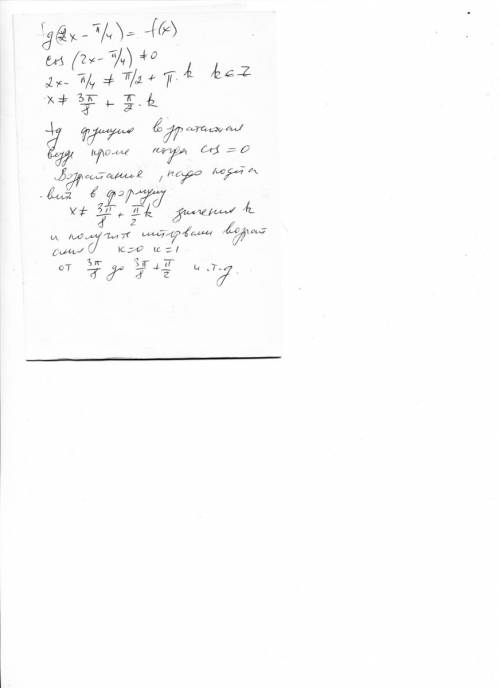 tg(2x - π/4) = f(x)
cos (2x - π/4) ≠ 0
2x - π/4 ≠ π/2 + π·k k ∈ Z
x ≠ 3π/8 + π/2 · k
tg функция возрастающая
везде кроме когда cos = 0
Возрастание, надо подста
вить в формулу
x ≠ 3π/8 + π/2 k значения k
и получите интервалы возраст
ания k=0 k=1
от 3π/8 до 3π/8 + π/2 и.т.д.